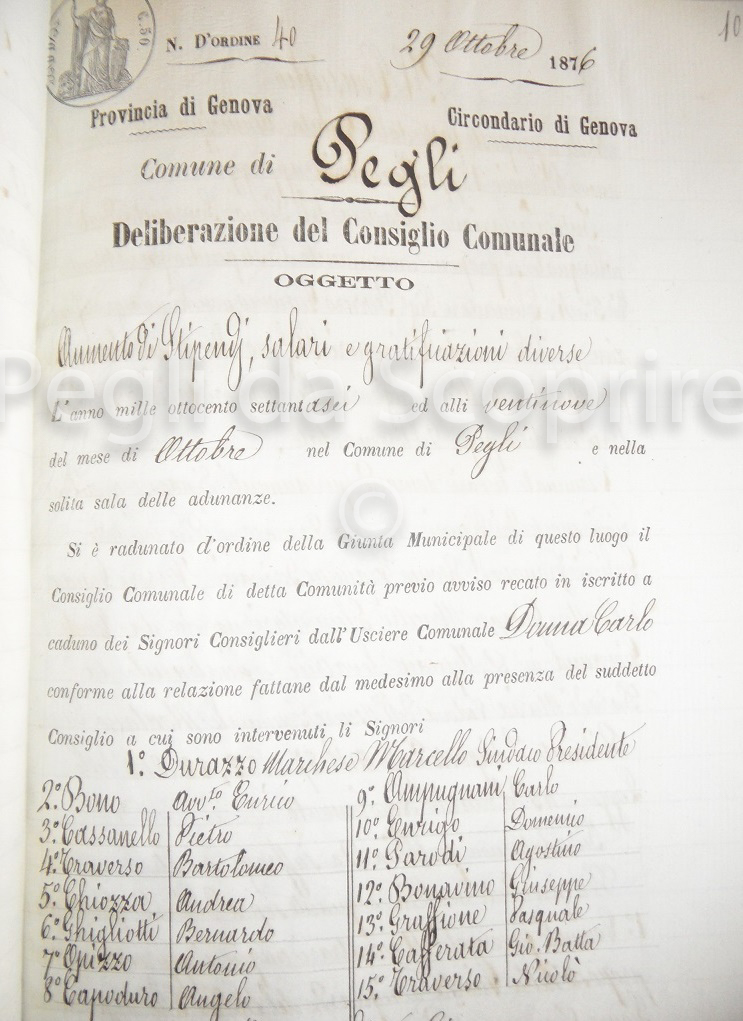 10
2.50
N. D'ORDINE 40
29 Ottobre 1876
Provincia di Genova
Circondario di Genova
Comune di Pegli
Deliberazione del Consiglio Comunale
OGGETTO
Aumento di Stipendj, salari e gratificazioni diverse
Pegli da Scoprire
©
L'anno mille ottocento settantasei ed alli ventinove
del mese di Ottobre nel Comune di Pegli e nella
solita sala delle adunanze.
Si è radunato d'ordine della Giunta Municipale di questo luogo il
Consiglio Comunale di detta Comunità previo avviso recato in iscritto a
caduno dei Signori Consiglieri dall'Usciere Comunale Donna Carlo
conforme alla relazione fattane dal medesimo alla presenza del suddetto
Consiglio a cui sono intervenuti li Signori
1º Durazzo Marchese Marcello Sindaco Presidente
2º Bono Avv.to Enrico
3º Cassanello Pietro
4º Traverso Bartolomeo
5º Chiozza Andrea
6º Ghigliotti Bernardo
7º Opizzo Antonio
8º Capoduro Angelo
9º Ampugnani Carlo
10º Enrigo Domenico
11º Parodi Agostino
12º Bonavino Giuseppe
13º Graffione Pasquale
14º Cafferata Gio. Batta
15º Traverso Nicolò